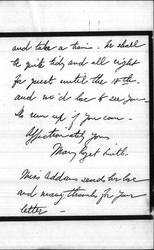 and take a train. We shall
be quite tidy and all right
for guest until the 18th
and we'd love to see you.
Do run up if you can.
Affectionately yours
Mary Rozet Smith.
Miss Addams sends her love
and many thanks for your
letter -